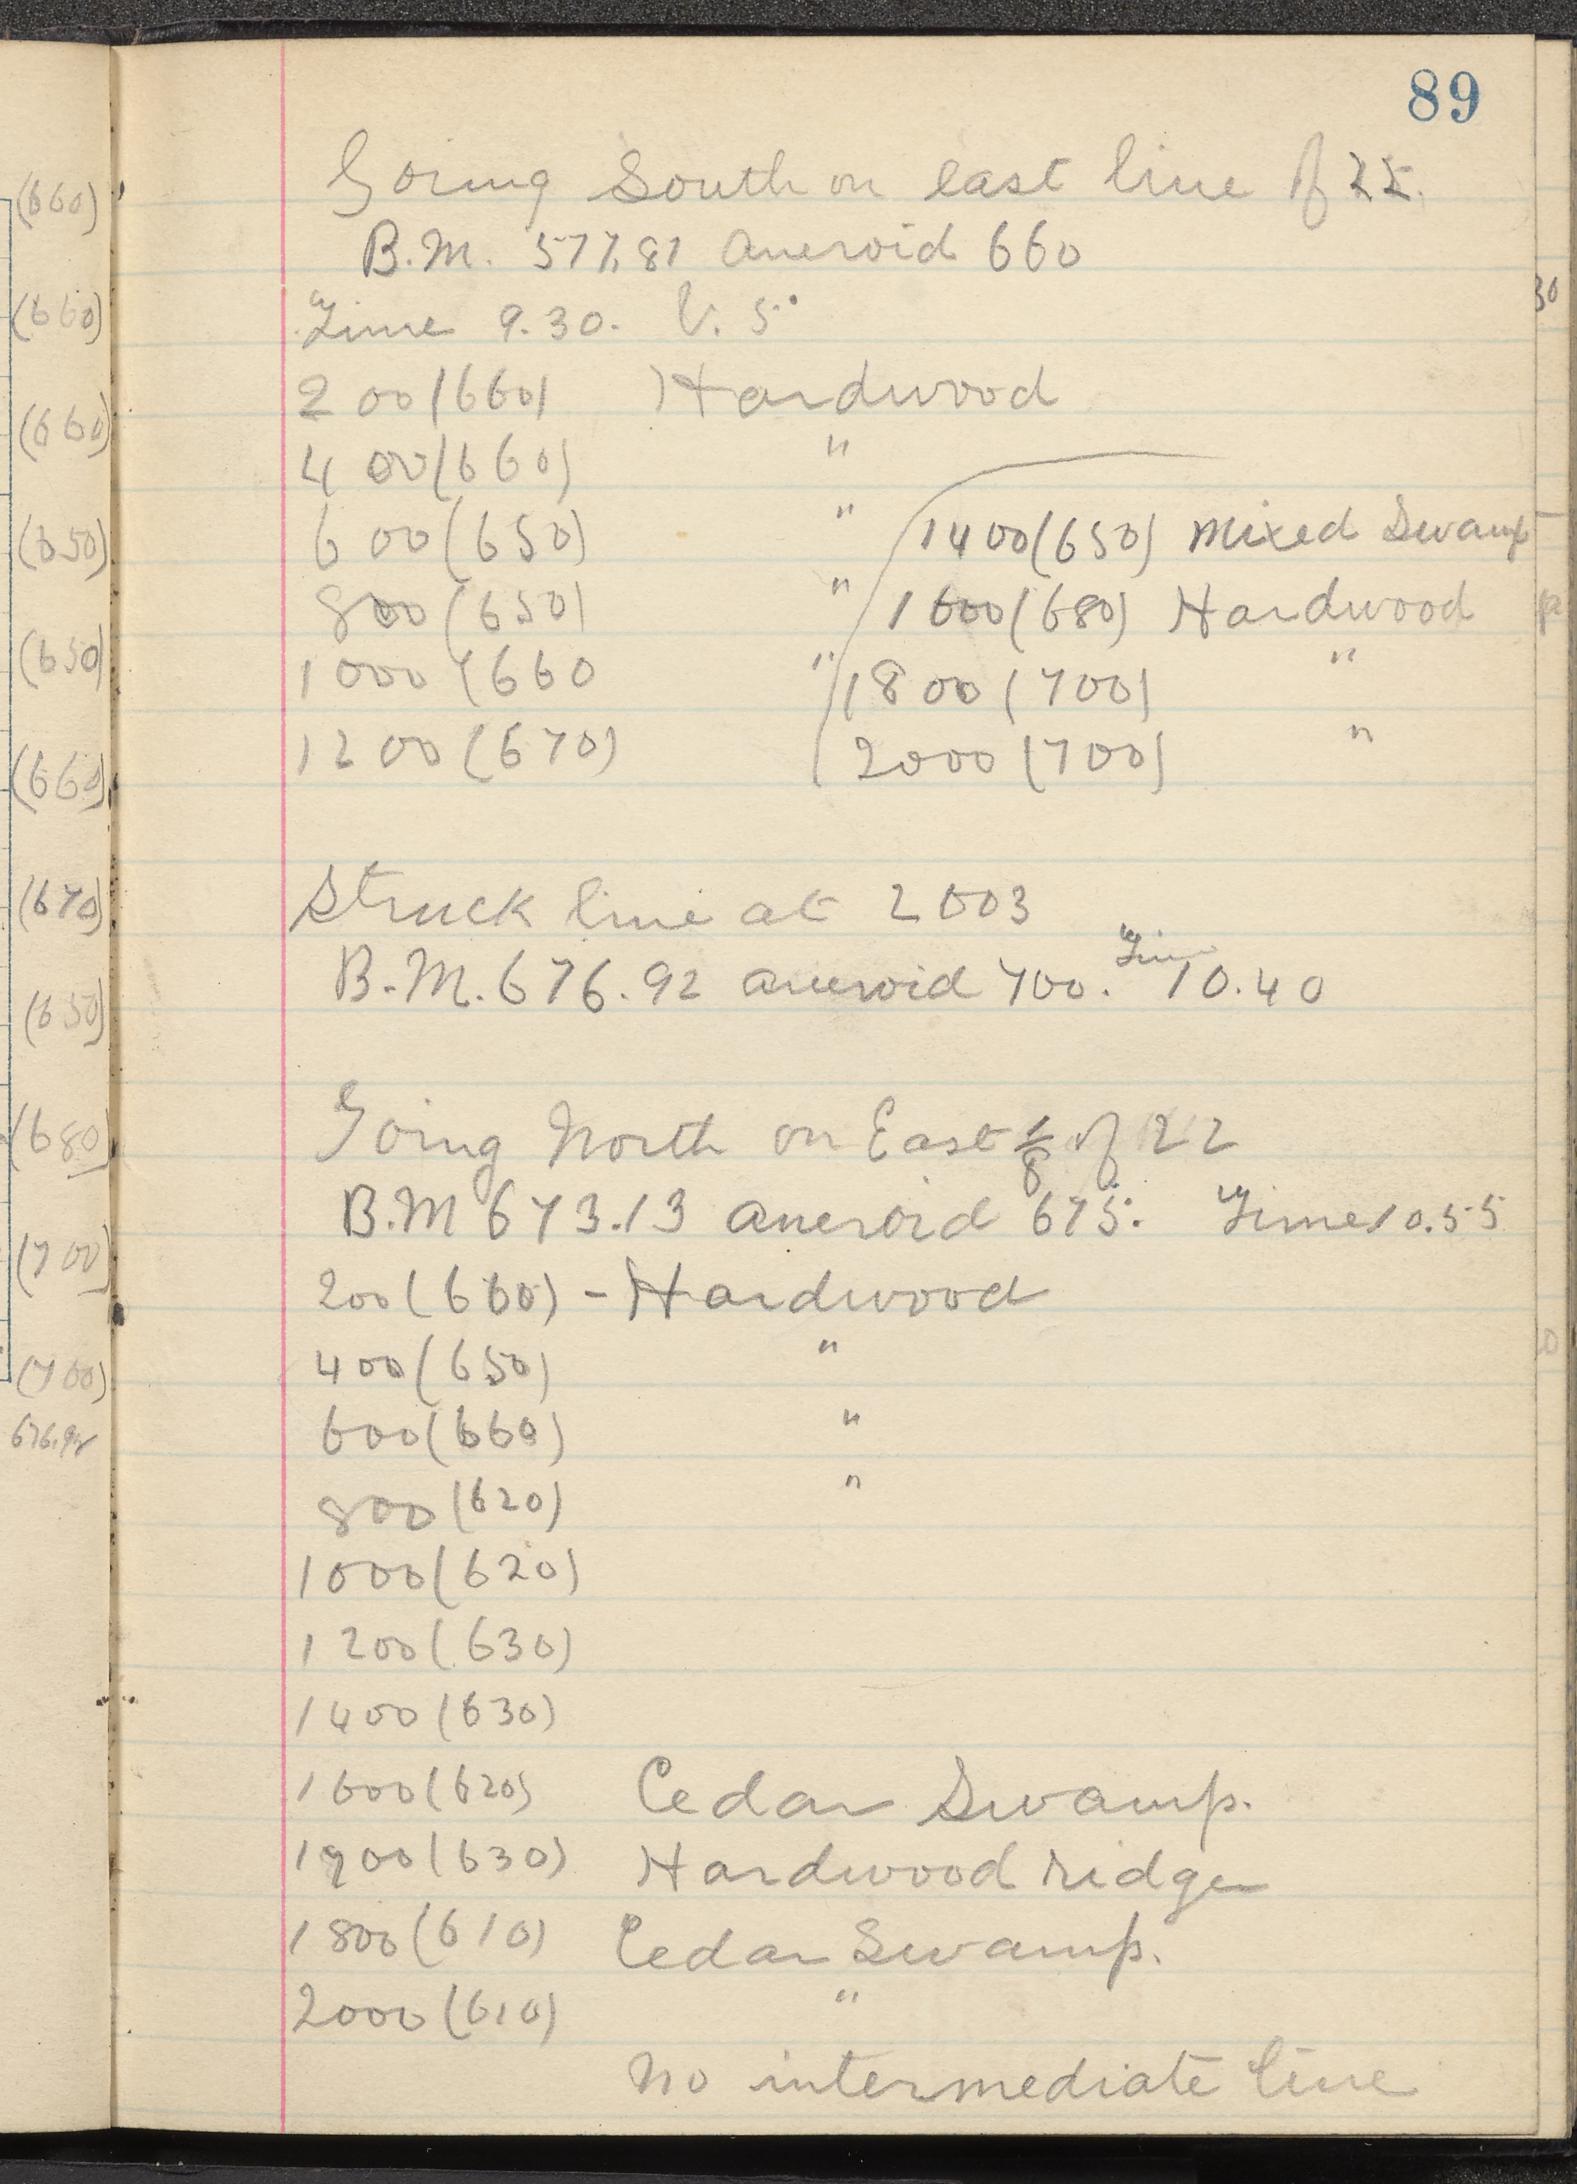 89
Going South on east line of 22.
B.M. 577.81 aneroid 660
Time 9.30. V. 5°
200 (660) Hardwood
400 (660) "
600 (650) "
800 (650) "
1000 (660 "
1200 (670)
1400 (650) Mixed Swamp
1600 (680) Hardwood
1800 (700) "
2000 (700) "
Struck line at 2003
B.M. 676.92 aneroid 700. Time 10.40
Going North on East 1/8 of 22
B.M 673.13 aneroid 675. Time 10.55
200 (660) - Hardwood
400 (650) "
600 (660) "
800 (620) "
1000 (620)
1200 (630)
1400 (630)
1600 (620) Cedar Swamp.
1700 (630) Hardwood ridge
1800 (610) Cedar Swamp.
2000 (610) "
No intermediate line
(660)
(660)
(660)
(650)
(650)
(660)
(670)
(650)
(680)
(700)
(700)
676.92